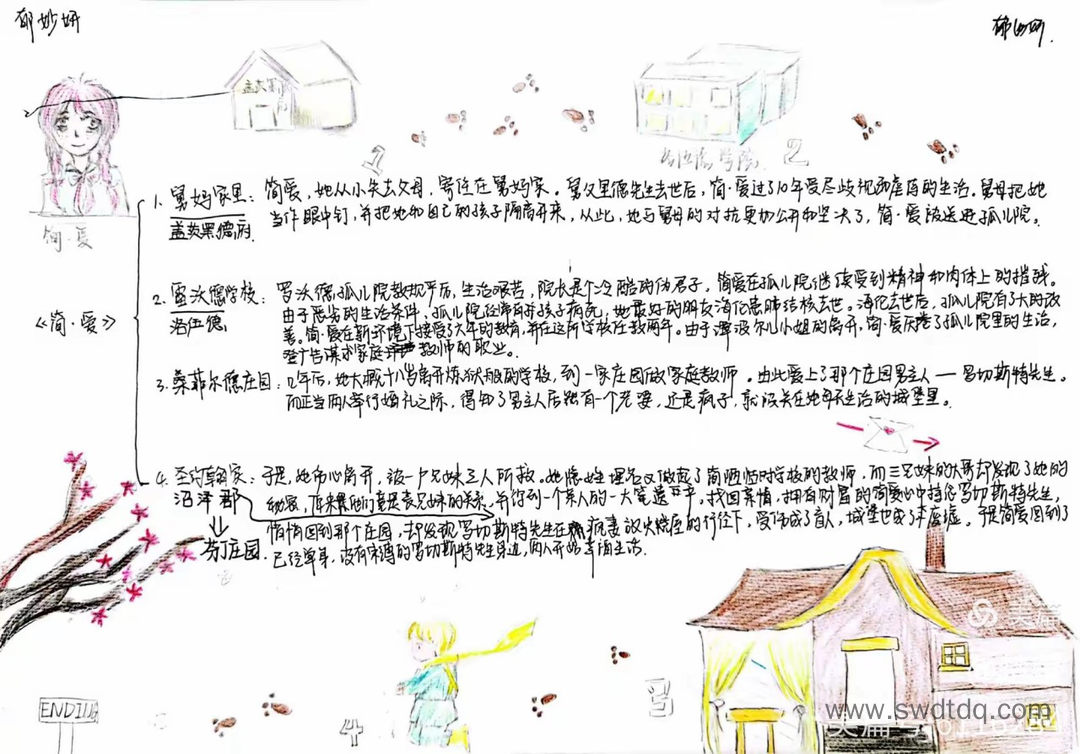 郁妙妍
郁妙妍
盖茨黑
1
洛伍德学院 2
简·爱
《简·爱》
1. 舅妈家里: 简爱,她从小失去父母,寄住在舅妈家。舅父里德先生去世后,简·爱过了10年受尽歧视和虐待的生活。舅母把她
盖茨黑德府 当作眼中钉,并把她和自己的孩子隔离开来,从此,她与舅母的对抗更加公开和坚决了,简·爱被送进孤儿院。
2. 雷沃德学校: 罗沃德孤儿院教规严厉,生活艰苦,院长是个冷酷的伪君子,简爱在孤儿院继续受到精神和肉体上的摧残。
洛伍德 由于恶劣的生活条件,孤儿院经常有孩子病死,她最好的朋友海伦患肺结核去世。海伦去世后,孤儿院有了大的改
善。简·爱在新环境下接受了六年的教育,并在这所学校任教两年。由于谭波尔小姐的离开,简·爱厌倦了孤儿院里的生活,
登广告谋求家庭教师的职业。
3. 桑菲尔德庄园: 几年后,她大概十八岁离开炼狱般的学校,到一家庄园做家庭教师。由此爱上了那个庄园男主人——罗切斯特先生。
而正当两人举行婚礼之际,得知了男主人居然有一个老婆,还是疯子,就被关在她每天生活的城堡里。
4. 圣约翰家: 于是,她伤心离开,被一户兄妹三人所救。她隐姓埋名又做起了简陋临时学校的教师,而三兄妹的大哥却发现了她的
沼泽郡 秘密,原来他们竟是表兄妹的关系,并得到一个亲人的一大笔遗产,找回亲情,拥有财富的简爱心中挂念罗切斯特先生,
悄悄回到那个庄园,却发现罗切斯特先生在病妻放火烧屋的行径下,受伤成了盲人,城堡也成了废墟。于是简爱回到了
芬丁庄园 已经单身,没有束缚的罗切斯特先生身边,两人开始幸福生活.
美篇
ENDING
4
3
www.swdtdq.com
美篇